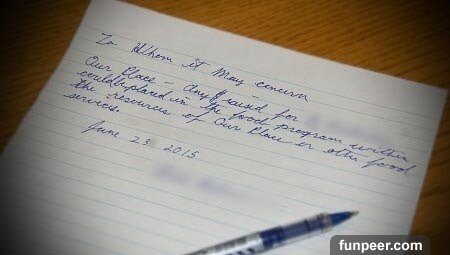 To Whom it May concern
Our Place - any $ raised for
could be placed in the food program within
the resources of Our Place or other food
services.
June 23 2015
funpeer.com